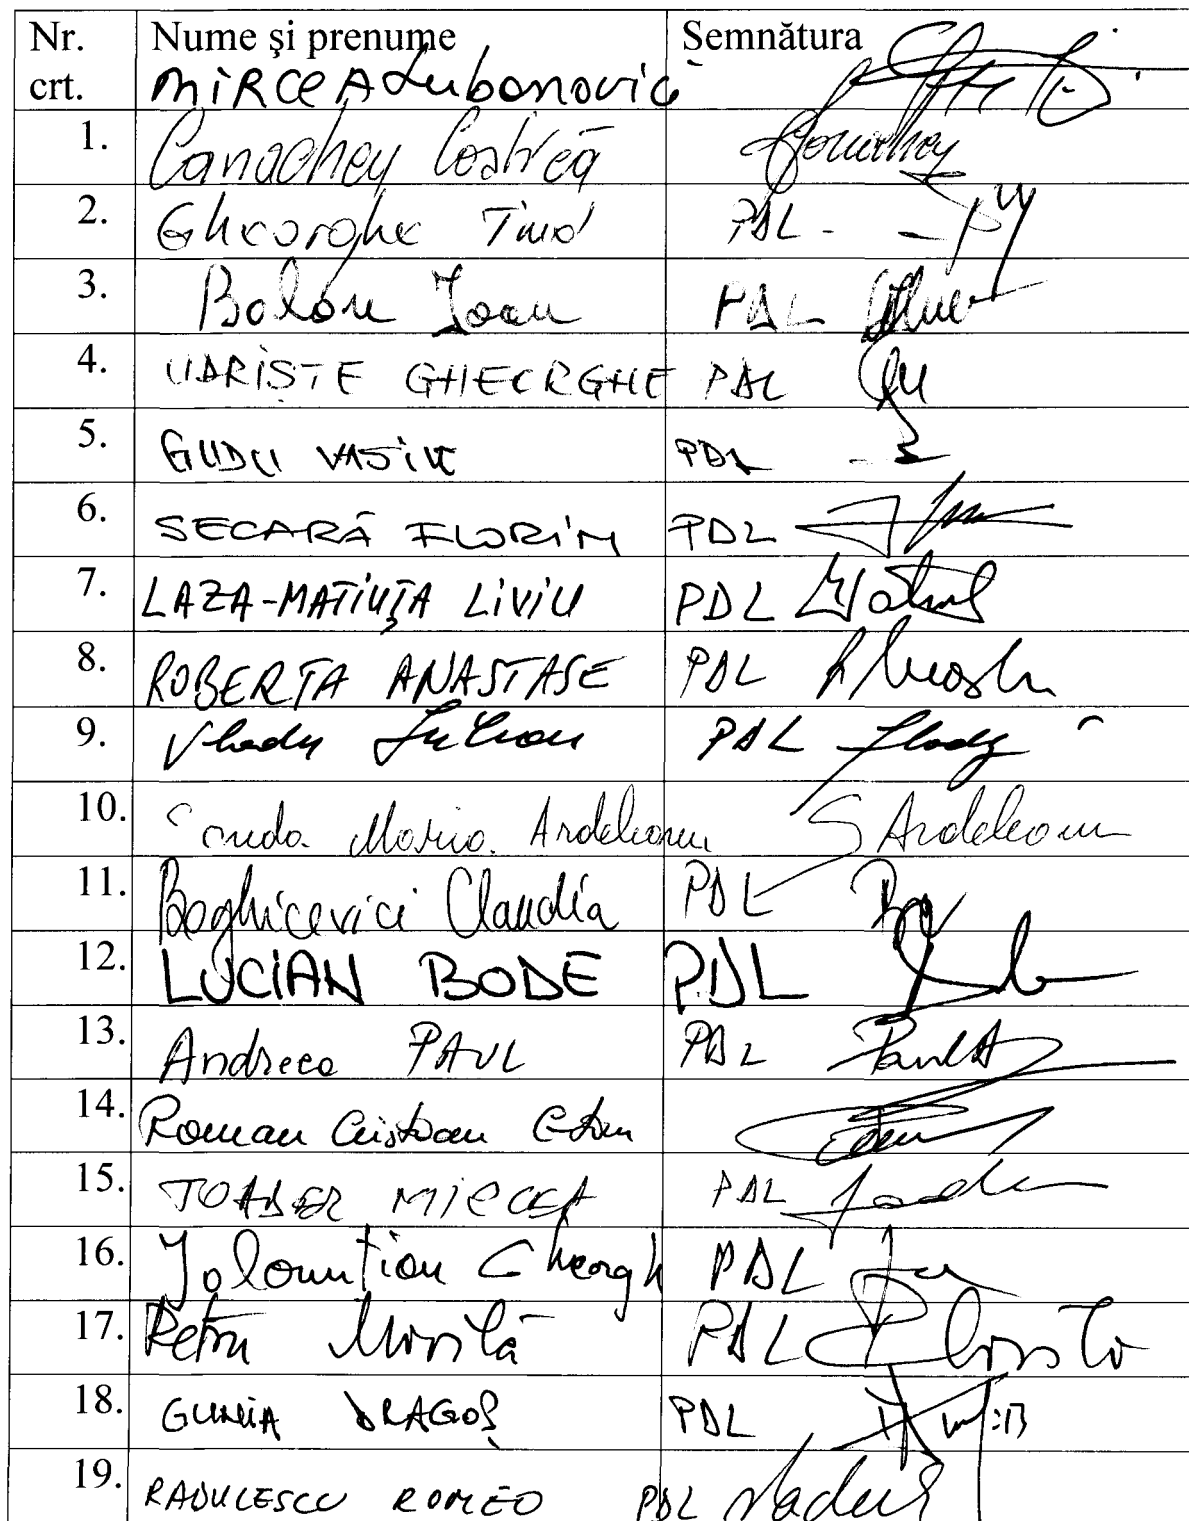 Nr. Nume și prenume Semnătura
crt. MiRCeA Lubanovici
1. Canacheu Costică
2. Gheorghe Tinel PDL -
3. Bolan Ioan PDL
4. UDRIȘTE GHEORGHE PDL
5. GUDU VASILE PDL
6. SECARĂ FLORIN PDL
7. LAZA-MATIUȚA LiViU PDL
8. ROBERTA ANASTASE PDL
9. Vladu Iulian PDL Vladu
10. Sanda Maria Ardeleanu S Ardeleanu
11. Boghicevici Claudia PDL
12. LUCiAN BODE PDL
13. Andreea PAUL PDL Paul A
14. Roman Cristian
15. TOADER MIRCEA PDL Toader
16. Ialomițian Gheorgh PDL
17. Petru Movilă PDL
18. GUNIA DRAGOȘ PDL
19. RADULESCU ROMEO PDL